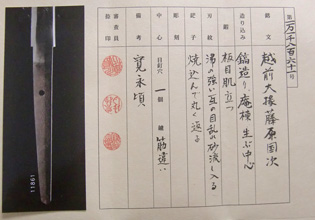 第一万一千八百六十一号
銘文
越前大掾藤原国次
造り込み
鎬造り庵棟生ぶ中心
鍛
板目肌立つ
刃紋
沸の強い互の目乱れ砂流し入る
鋩子
焼込んで丸く返る
彫刻
中心
目釘穴
一個
鑢
筋違い
備考
寛永頃
審査員
指印
11861